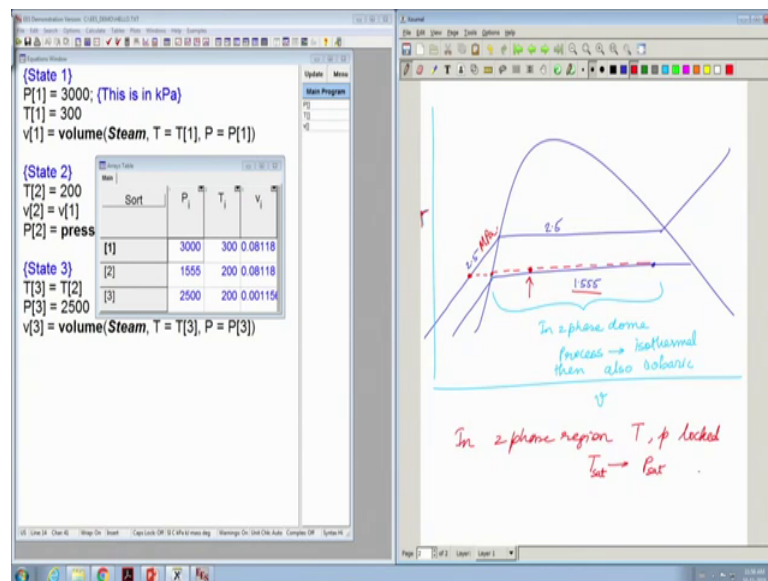 EES Demonstration Version - C:\EES_DEMO\HELLO.TXT
File Edit Search Options Calculate Tables Plots Windows Help Examples
Equations Window
{State 1}
P[1] = 3000; {This is in kPa}
T[1] = 300
v[1] = volume(Steam, T = T[1], P = P[1])
{State 2}
T[2] = 200
v[2] = v[1]
P[2] = press
{State 3}
T[3] = T[2]
P[3] = 2500
v[3] = volume(Steam, T = T[3], P = P[3])
Update Menu
Main Program
P[]
T[]
v[]
Arrays Table
Main
Sort Pi Ti vi
[1] 3000 300 0.08118
[2] 1555 200 0.08118
[3] 2500 200 0.001156
Line: 14 Char: 41 Wrap: On Insert Caps Lock: Off SI C kPa kJ mass deg Warnings: On Unit Chk: Auto Complex: Off
Journal
File Edit View Page Tools Options Help
T
2.5 MPa
2.5
1.555
In 2 phase dome
Process → isothermal
then also isobaric
v
In 2 phase region T, p locked
Tsat → Psat
Page 2 of 2 Layer: Layer 1